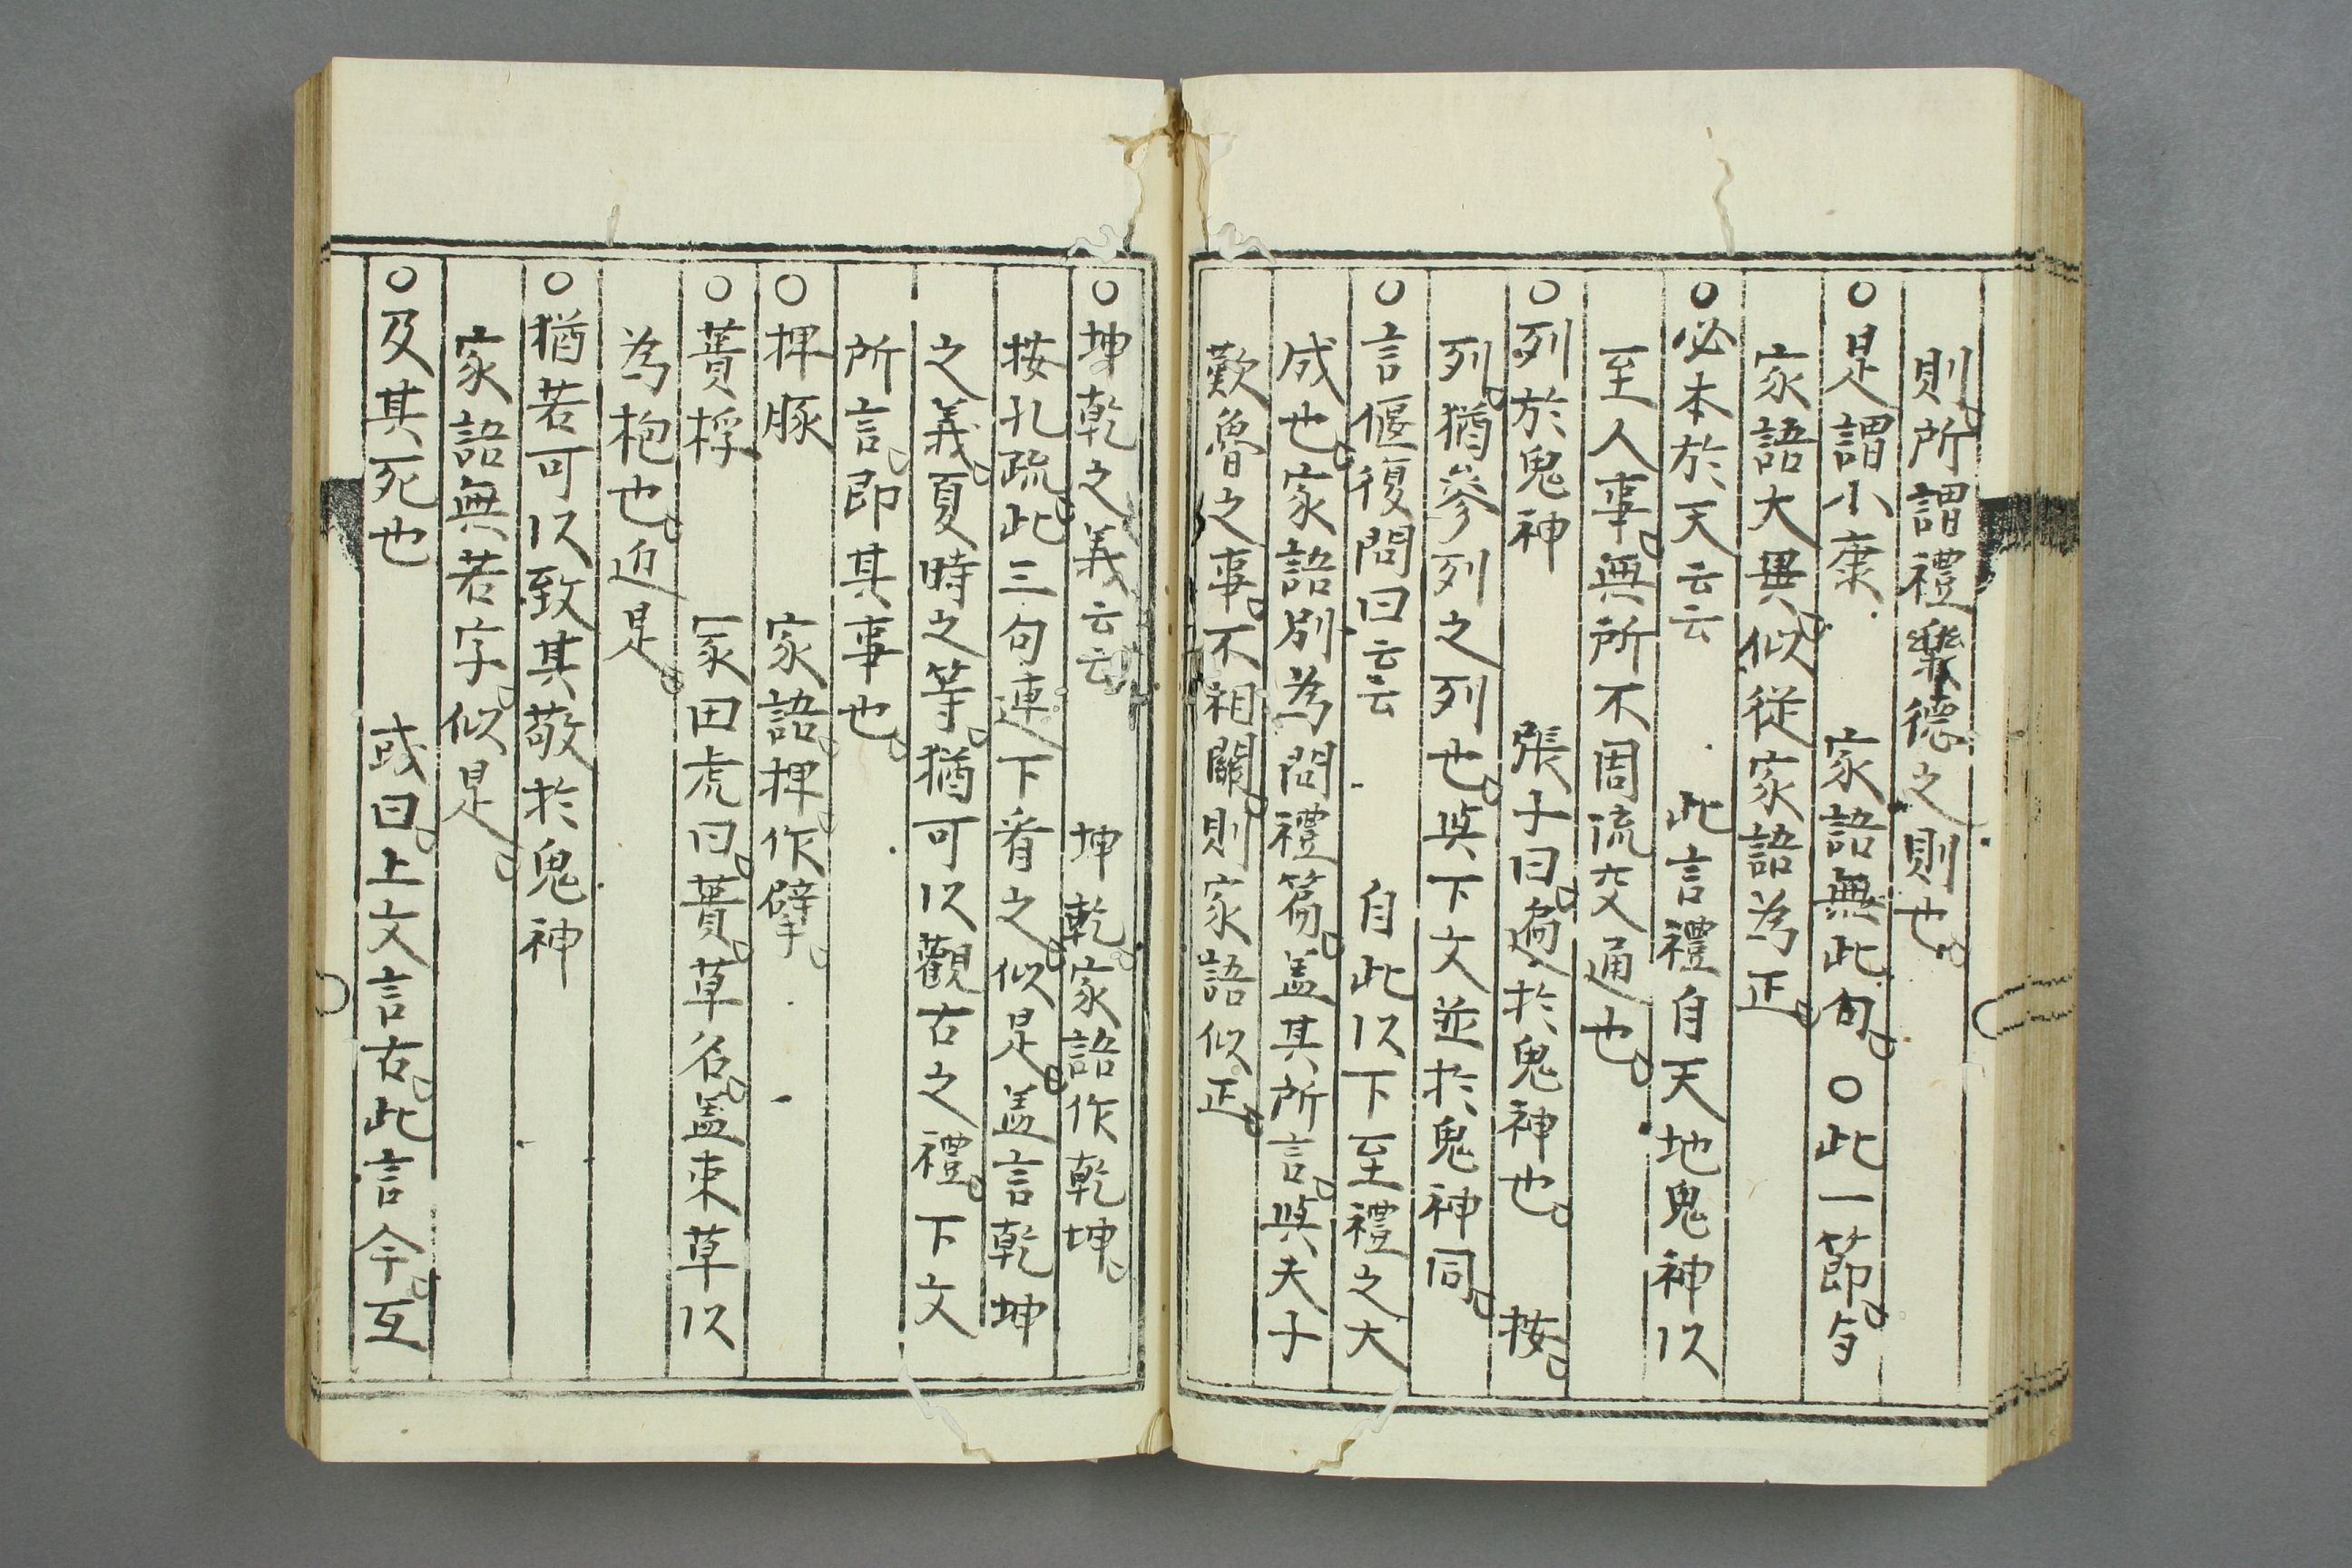 則所謂禮樂德之則也
○是謂小康 家語無此句 ○此一節与
家語大異似從家語為正
○必本於天云云 此言禮自天地鬼神以
至人事無所不周流交通也
○列於鬼神 張子曰徧於鬼神也 按
列猶參列之列也與下文並於鬼神同
○言偃復問曰云云 自此以下至禮之大
成也家語別為問禮篇盖其所言與夫子
歎魯之事不相關則家語似正
○坤乾之義云云 坤乾家語作乾坤
按孔疏此三句連下看之似是盖言乾坤
之義夏時之等猶可以觀古之禮下文
所言即其事也
○捭豚 家語捭作擘
○蕢桴 冢田虎曰蕢草名盖束草以
為枹也近是
○猶若可以致其敬於鬼神
家語無若字似是
○及其死也 或曰上文言古此言今互